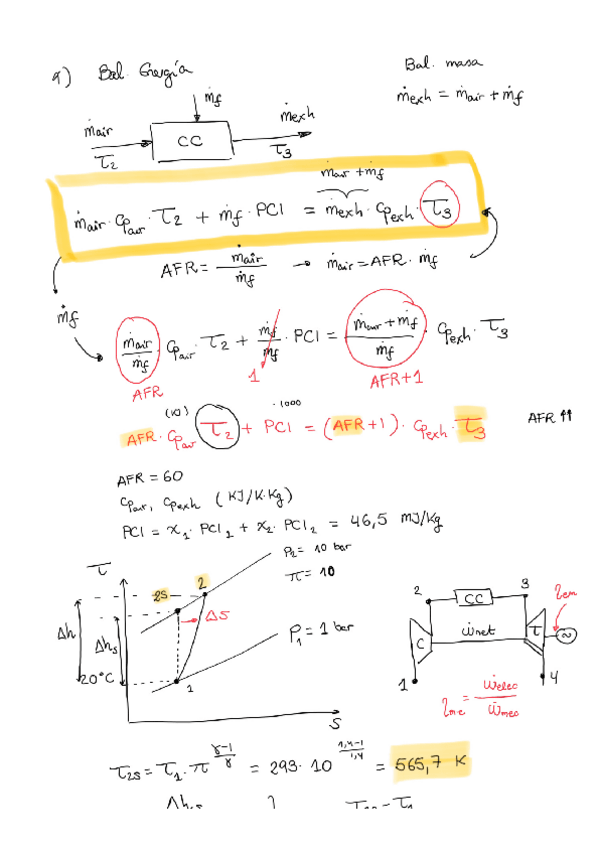 a) Bal. Energía
Bal. masa
ṁexh = ṁair + ṁf
ṁf
ṁair
CC
ṁexh
T2
T3
ṁair + ṁf
ṁair · Cpair · T2 + ṁf · PCI = ṁexh · Cpexh · T3
AFR = ṁair/ṁf → ṁair = AFR · ṁf
ṁf
ṁair/ṁf · Cpair · T2 + ṁf/ṁf · PCI = (ṁair + ṁf)/ṁf · Cpexh · T3
AFR
1
AFR+1
· 1000
AFR · Cpair · T2 + PCI = (AFR+1) · Cpexh · T3
AFR ↑↑
AFR = 60
Cpair, Cpexh (KJ/K·Kg)
PCI = x1 · PCI1 + x2 · PCI2 = 46,5 MJ/Kg
T
P2 = 10 bar
π = 10
2S
2
ΔS
Δh
Δhs
P1 = 1 bar
20°C
1
S
2
CC
3
C
Ẇnet
T
~
1
4
ηme = Ẇelec/Ẇmec
T2s = T1 · π^(γ-1/γ) = 293 · 10^(1,4-1/1,4) = 565,7 K